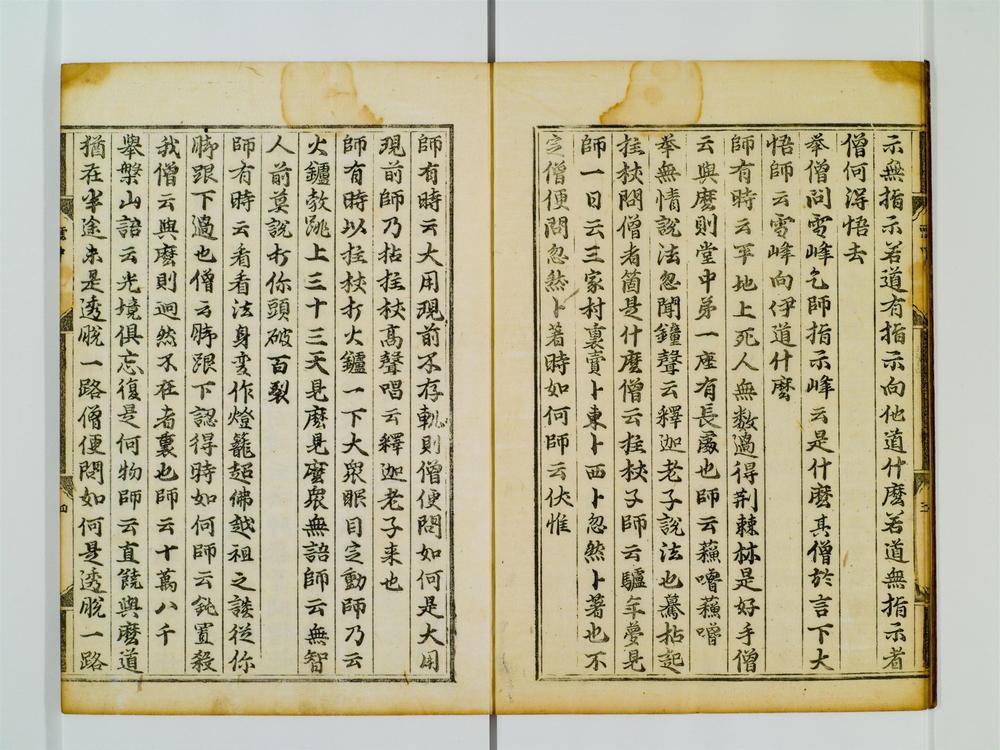 示無指示若道有指示向他道什麽若道無指示者
僧何淂悟去
舉僧问雪峰乞師指示峰云是什麽其僧於言下大
悟師云雪峰向伊道什麽
師有時云平地上死人無數過得荆棘林是好手僧
云與麽則堂中弟一座有長處也師云蘓嚕蘓嚕
举無情說法忽聞鐘聲云釋迦老子說法也驀拈起
拄杖問僧者箇是什麽僧云拄杖子師云驢年夢見
師一日云三家村裏賣卜東卜西卜忽然卜著也不
定僧便問忽然卜著時如何師云伏惟
師有時云大用現前不存軌則僧便問如何是大用
現前師乃拈拄杖髙聲唱云釋迦老子来也
師有時以拄杖打火鑪一下大衆眼目定動師乃云
火鑪勃跳上三十三天見麽見麽衆無語師云無智
人前莫說打你頭破百裂
師有時云看看法身变作燈籠超佛越祖之談從你
脚跟下過也僧云脚跟下認得時如何師云鈍置殺
我僧云與麽則迥然不在者裏也師云十萬八千
舉盤山語云光境俱忘復是何物師云直饒與麽道
猶在半途未是透脫一路僧便問如何是透脫一路
三
四